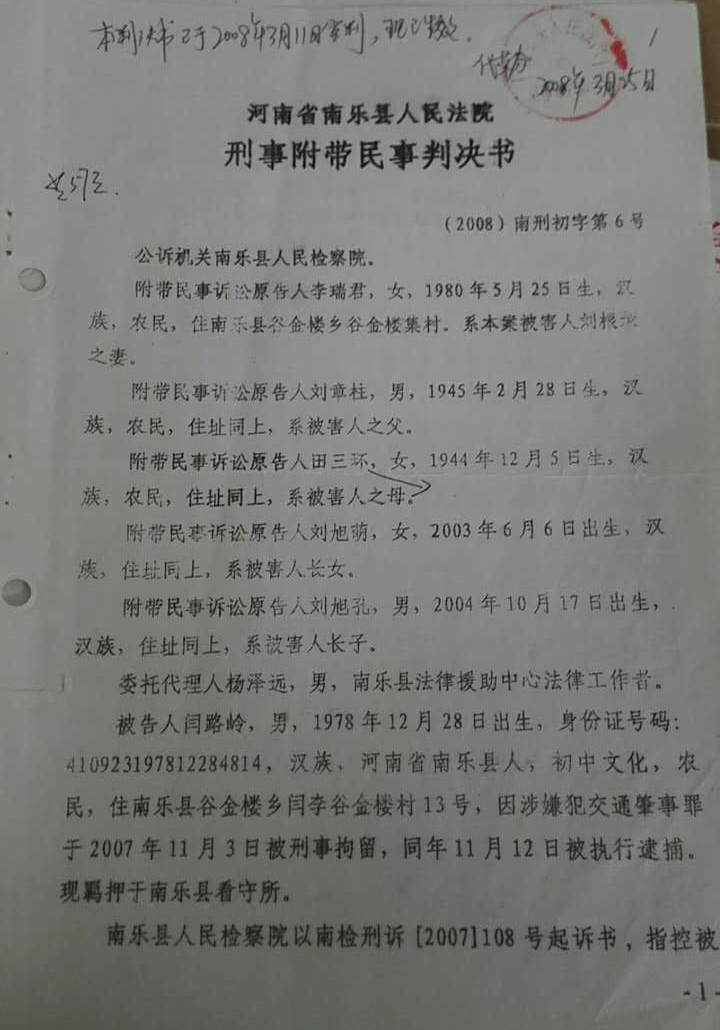 本判决书已于2008年3月11日宣判，现已生效。
1
2008年3月25日
河南省南乐县人民法院
刑事附带民事判决书
（2008）南刑初字第6号
公诉机关南乐县人民检察院。
附带民事诉讼原告人李瑞君，女，1980年5月25日生，汉
族，农民，住南乐县谷金楼乡谷金楼集村。系本案被害人刘根
之妻。
附带民事诉讼原告人刘章柱，男，1945年2月28日生，汉
族，农民，住址同上，系被害人之父。
附带民事诉讼原告人田三环，女，1944年12月5日生，汉
族，农民，住址同上，系被害人之母。
附带民事诉讼原告人刘旭萌，女，2003年6月6日出生，汉
族，住址同上，系被害人长女。
附带民事诉讼原告人刘旭孔，男，2004年10月17日出生，
汉族，住址同上，系被害人长子。
委托代理人杨泽远，男，南乐县法律援助中心法律工作者。
被告人闫路岭，男，1978年12月28日出生，身份证号码：
410923197812284814，汉族，河南省南乐县人，初中文化，农
民，住南乐县谷金楼乡闫李谷金楼村13号，因涉嫌犯交通肇事罪
于2007年11月3日被刑事拘留，同年11月12日被执行逮捕。
现羁押于南乐县看守所。
南乐县人民检察院以南检刑诉[2007]108号起诉书，指控被
-1-